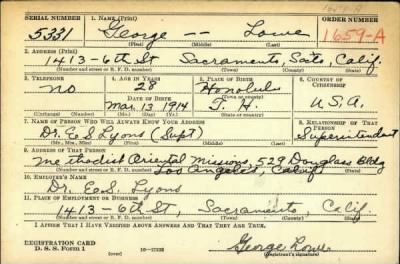 SERIAL NUMBER 1. NAME (Print) ORDER NUMBER
5331 George -- Lowe 1659-A
(First) (Middle) (Last)
2. ADDRESS (Print)
1413-6th St Sacramento, Sato, Calif.
(Number and street or R. F. D. number) (Town) (County) (State)
3. TELEPHONE 4. AGE IN YEARS 5. PLACE OF BIRTH 6. COUNTRY OF CITIZENSHIP
no 28 Honolulu
(Town or county)
DATE OF BIRTH
Mar. 13 1914 T. H. U.S.A.
(Exchange) (Number) (Mo.) (Day) (Yr.) (State or country)
7. NAME OF PERSON WHO WILL ALWAYS KNOW YOUR ADDRESS 8. RELATIONSHIP OF THAT PERSON
Dr. E S Lyons (Supt) Superintendent
(Mr., Mrs., Miss) (First) (Middle) (Last)
9. ADDRESS OF THAT PERSON
Methodist Oriental Missions, 529 Douglass Bldg
Los Angelos, Calif
(Number and street or R. F. D. number) (Town) (County) (State)
10. EMPLOYER'S NAME
Dr. E.S. Lyons
11. PLACE OF EMPLOYMENT OR BUSINESS
1413-6th St, Sacramento, Calif
(Number and street or R. F. D. number) (Town) (County) (State)
I AFFIRM THAT I HAVE VERIFIED ABOVE ANSWERS AND THAT THEY ARE TRUE.
REGISTRATION CARD
D. S. S. Form 1 George Lowe
(Registrant's signature)